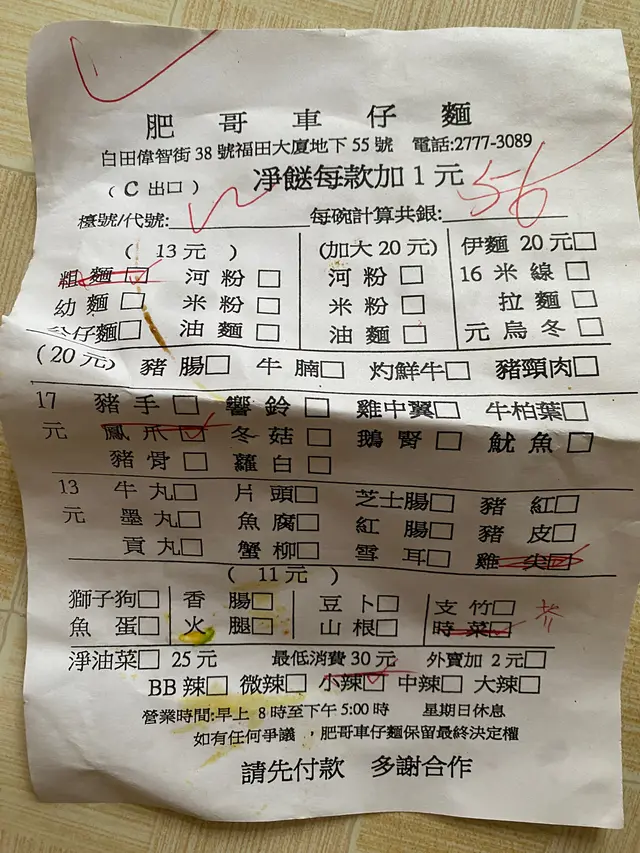 肥哥車仔麵
白田偉智街38號福田大廈地下55號 電話:2777-3089
(C出口) 凈餸每款加1元
檯號/代號: 每碗計算共銀: 56
(13元) (加大20元) 伊麵20元□
粗麵□ 河粉□ 河粉□ 16米線□
幼麵□ 米粉□ 米粉□ 拉麵□
公仔麵□ 油麵□ 油麵□ 元烏冬□
(20元) 豬腸□ 牛腩□ 灼鮮牛□ 豬頸肉□
17 豬手□ 響鈴□ 雞中翼□ 牛柏葉□
元 鳳爪□ 冬菇□ 鵝腎□ 魷魚□
豬骨□ 蘿白□
13 牛丸□ 片頭□ 芝士腸□ 豬紅□
元 墨丸□ 魚腐□ 紅腸□ 豬皮□
貢丸□ 蟹柳□ 雪耳□ 雞尖□
(11元)
獅子狗□ 香腸□ 豆卜□ 支竹□
魚蛋□ 火腿□ 山根□ 時菜□
淨油菜□ 25元 最低消費30元 外賣加2元□
BB辣□ 微辣□ 小辣□ 中辣□ 大辣□
營業時間:早上 8時至下午5:00時 星期日休息
如有任何爭議，肥哥車仔麵保留最終決定權
請先付款 多謝合作